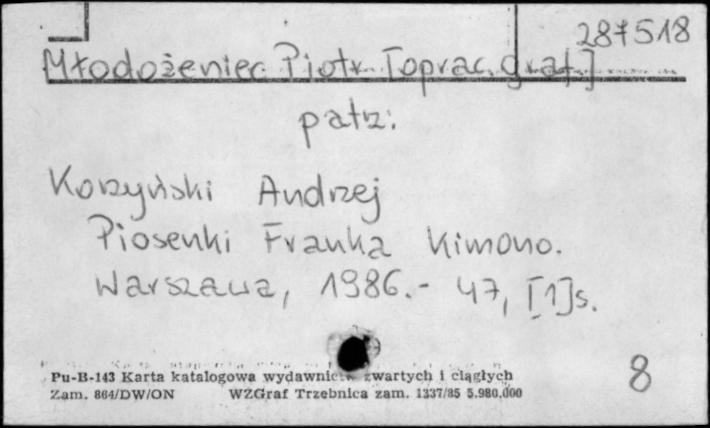 287518
Młodożeniec Piotr [oprac. graf.]
patrz:
Korzyński Andrzej
Piosenki Franka Kimono.
Warszawa, 1986.- 47, [1]s.
Pu-B-143 Karta katalogowa wydawnictw zwartych i ciągłych
Zam. 864/DW/ON WZGraf Trzebnica zam. 1337/85 5.980.000
8